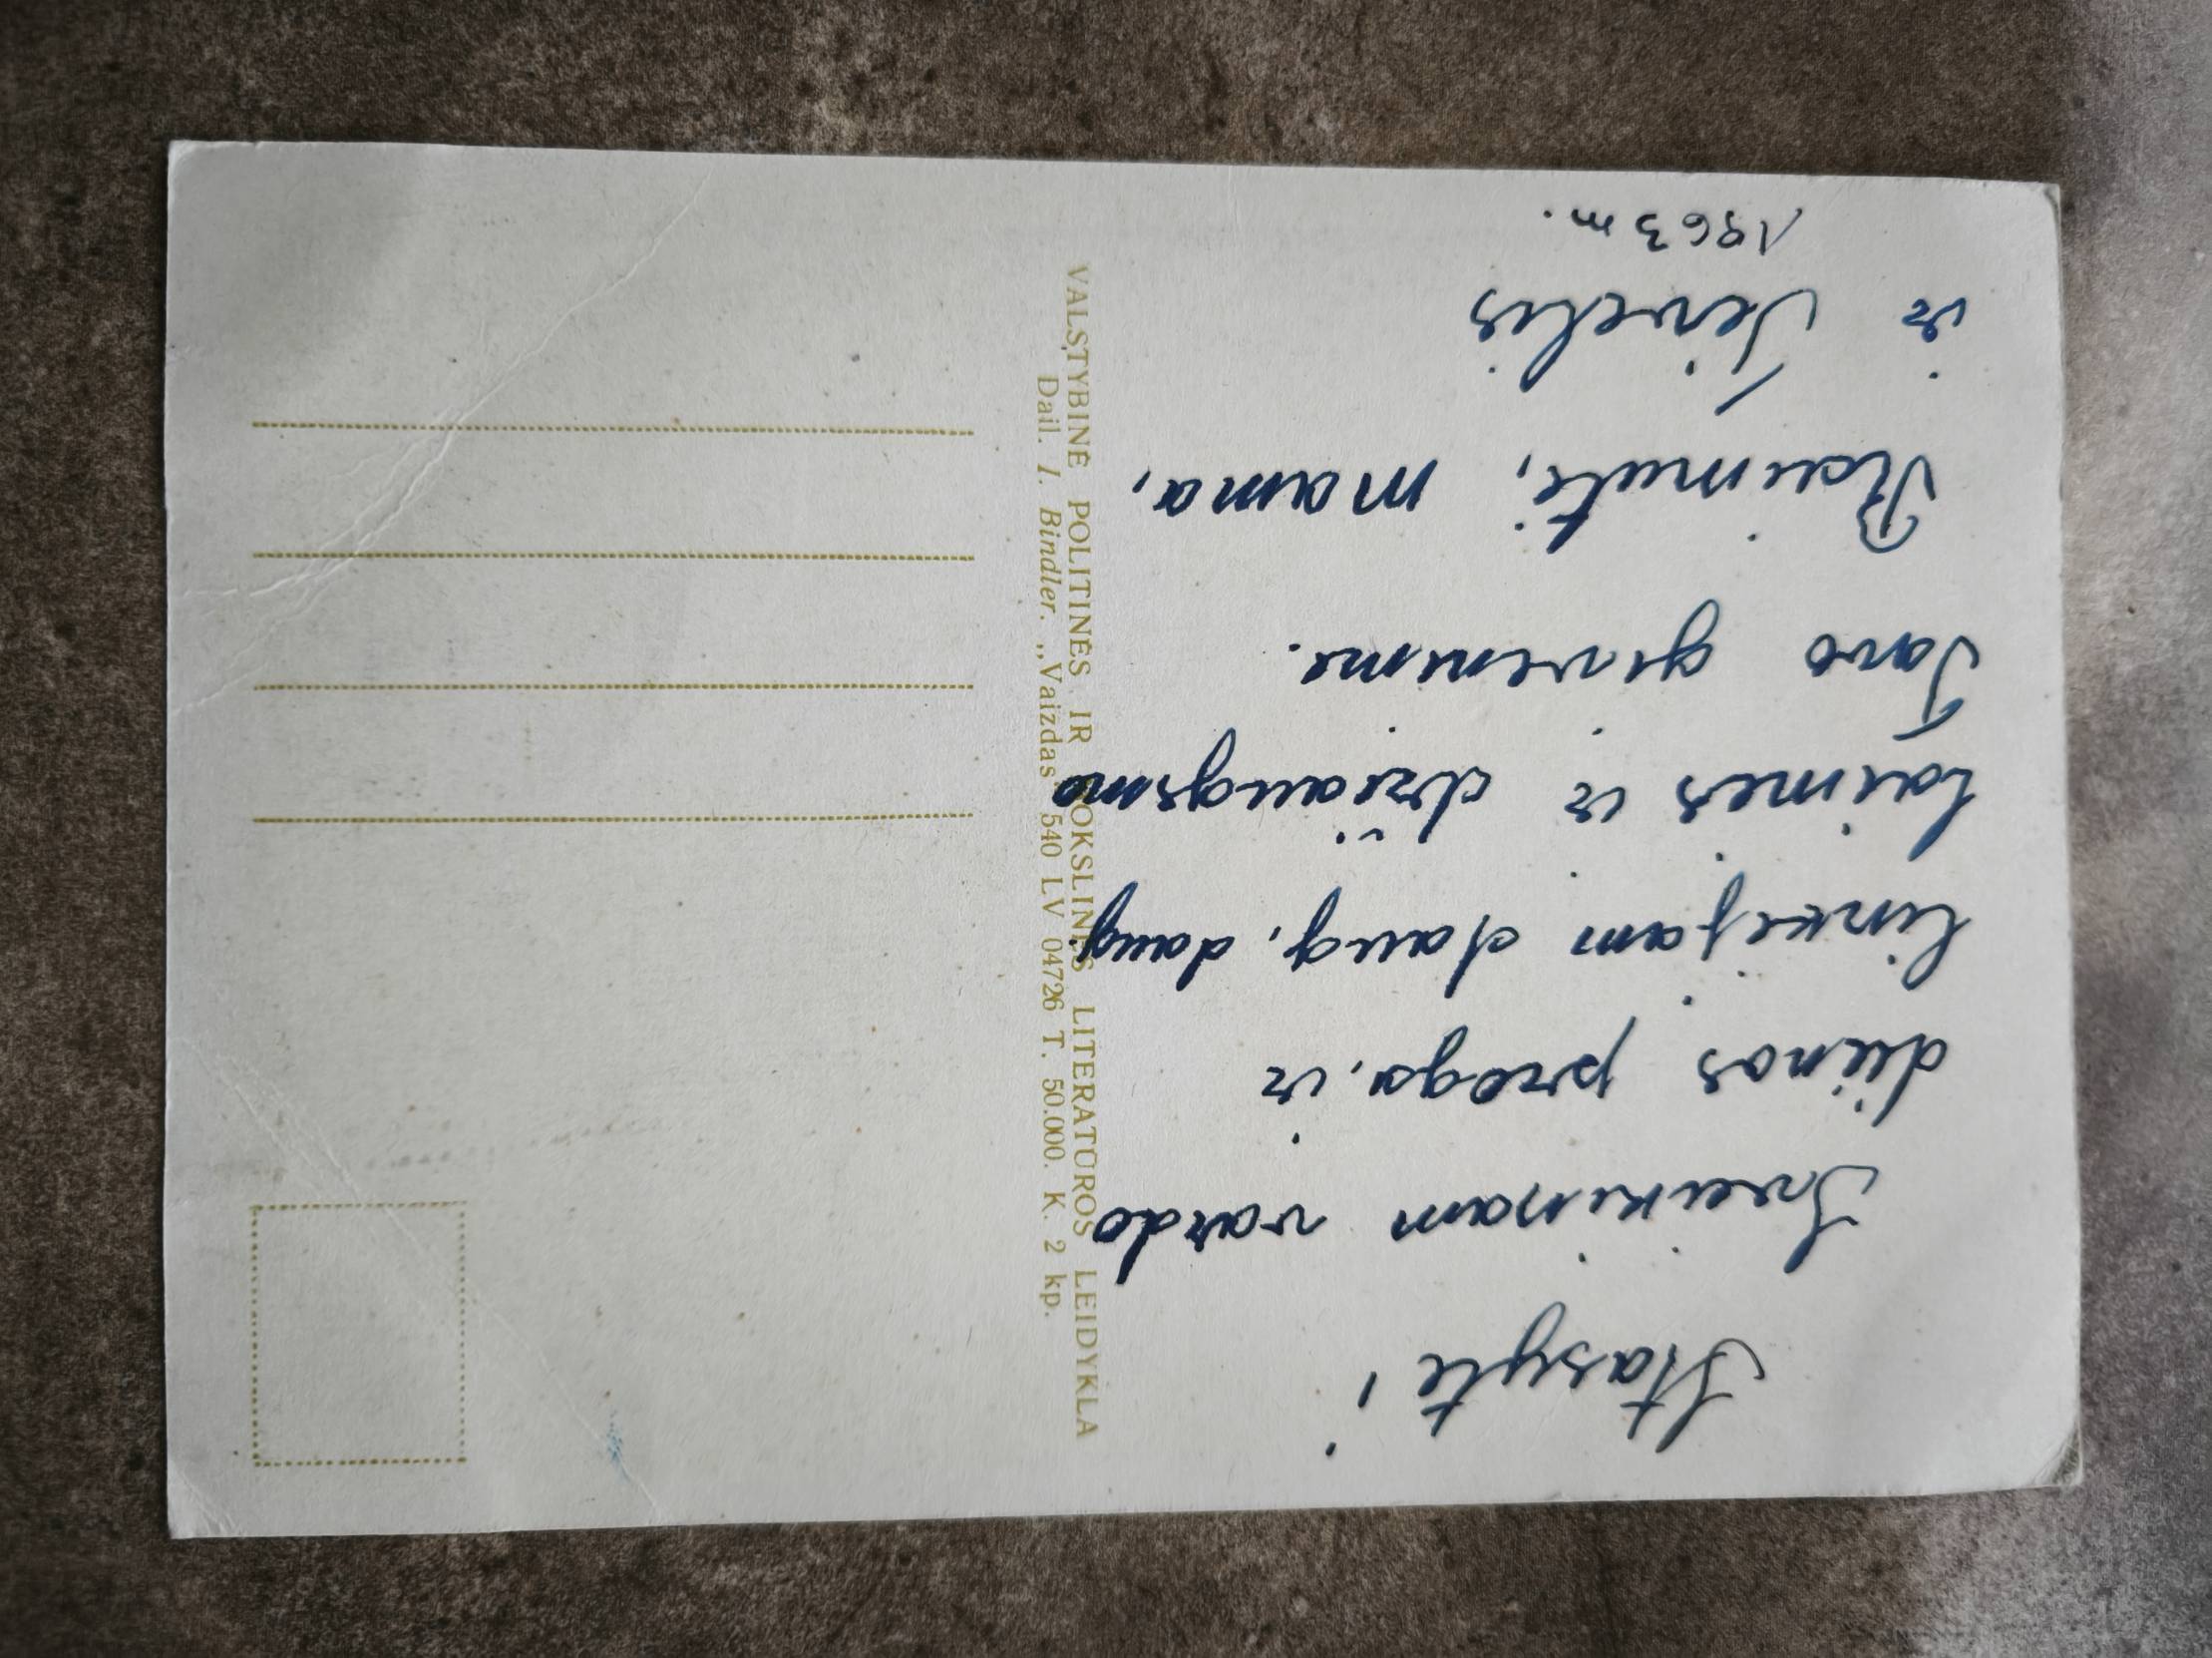 Stasyte!
Sveikinam vardo
dienos proga, ir
linkėjam daug, daug
laimės ir džiaugsmo
Tavo givenime.
Raimutė, mama,
ir Tėvelis
1963 m.
VALSTYBINĖ POLITINĖS IR MOKSLINĖS LITERATŪROS LEIDYKLA
Dail. I. Bindler. „Vaizdas" 540 LV 04726 T. 50.000. K. 2 kp.